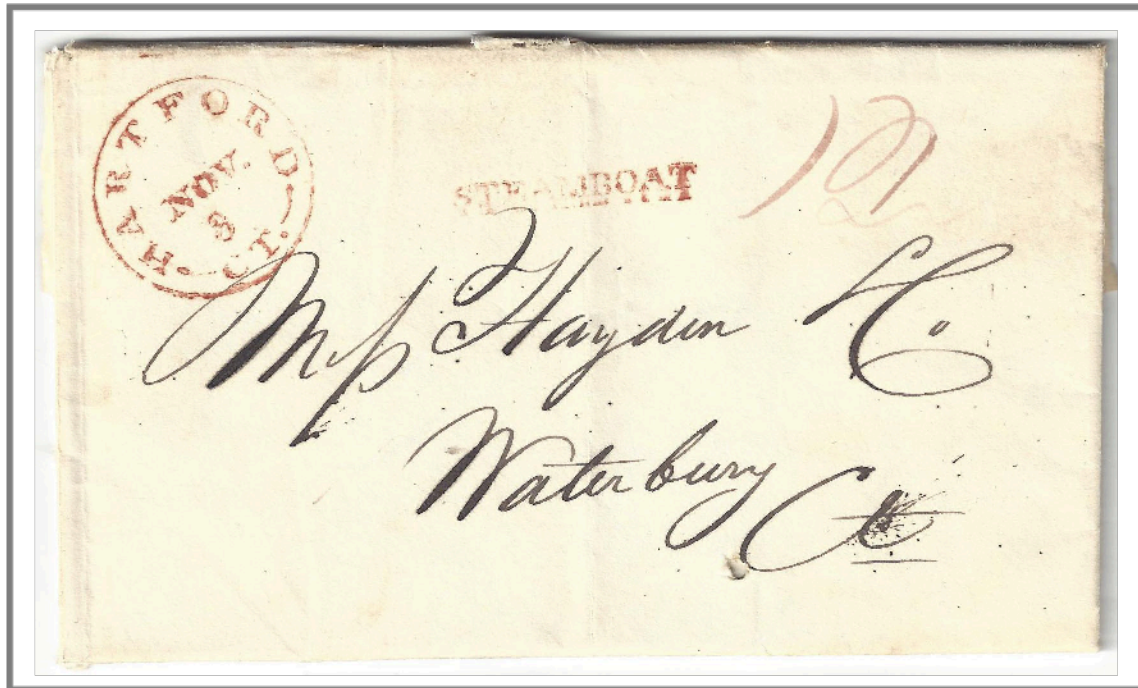 HARTFORD CT.
NOV.
8
STEAMBOAT
12
Mess Hayden & Co.
Waterbury
Ct